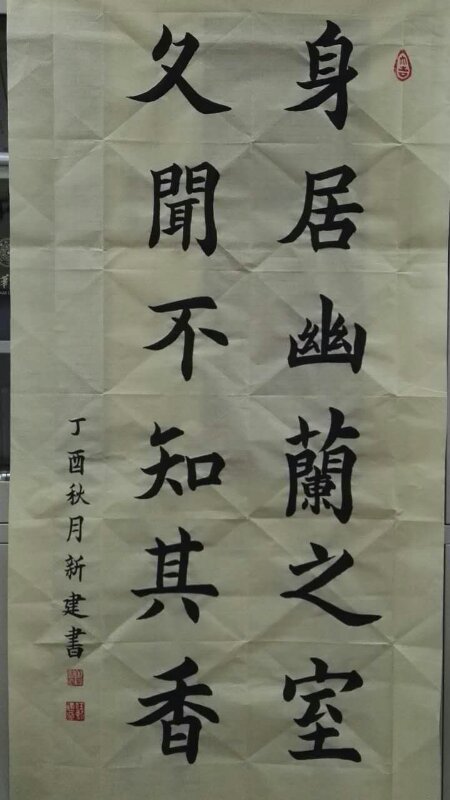 身居幽蘭之室
久聞不知其香
丁酉秋月新建書